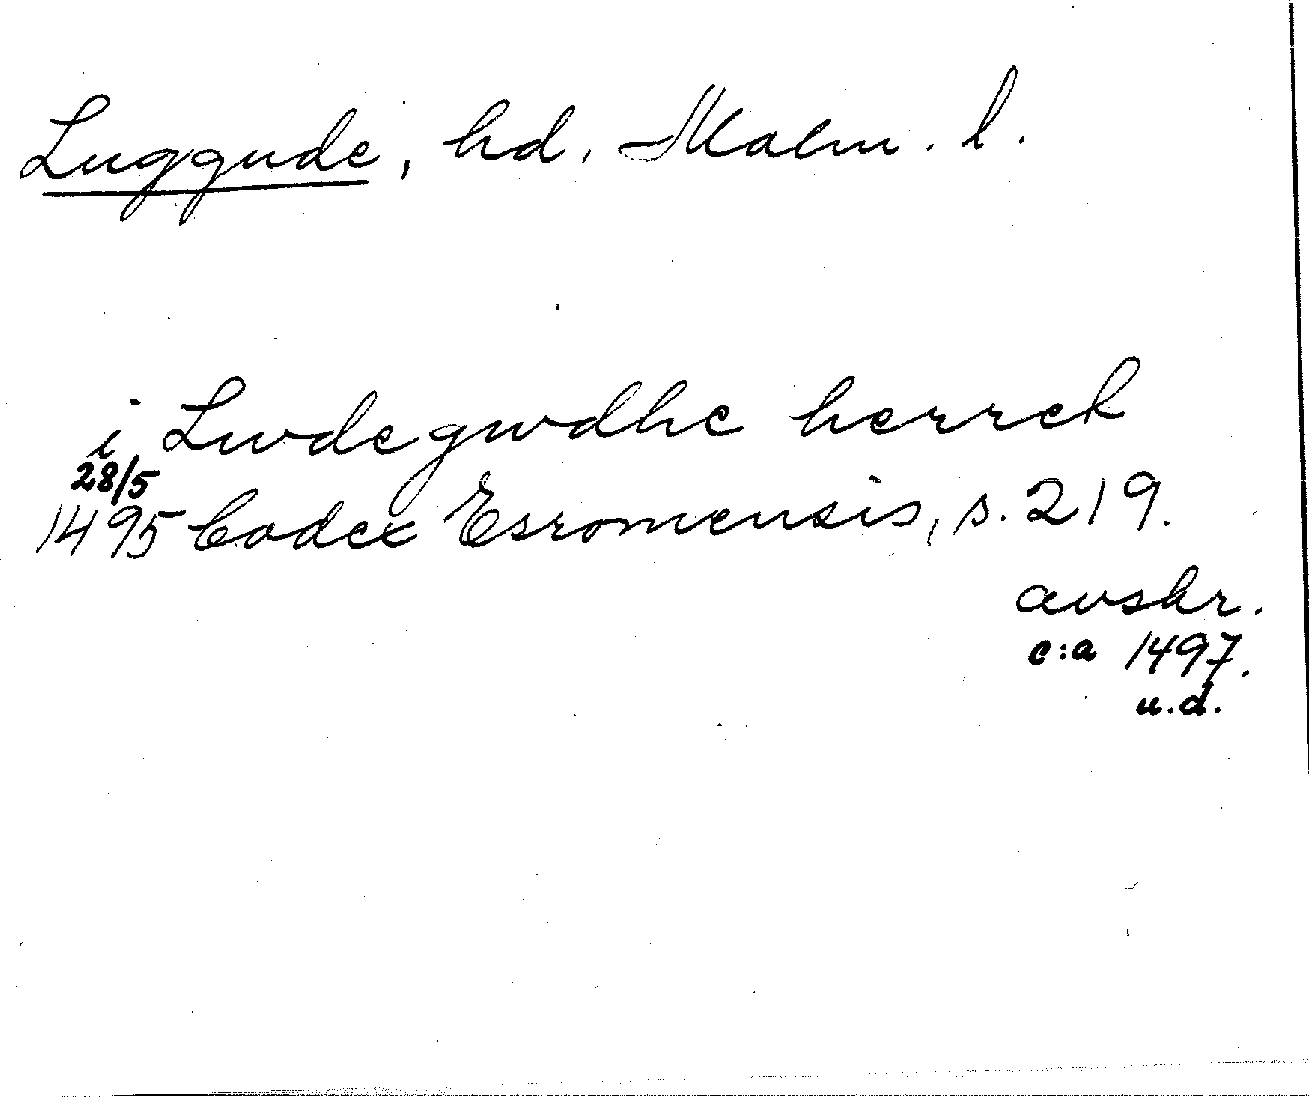 Luggude, hd. Malm. l.
i Lwdegwdhe herret
28/5
1495 Codex Esromensis, s. 219.
avskr.
c:a 1497.
u.d.